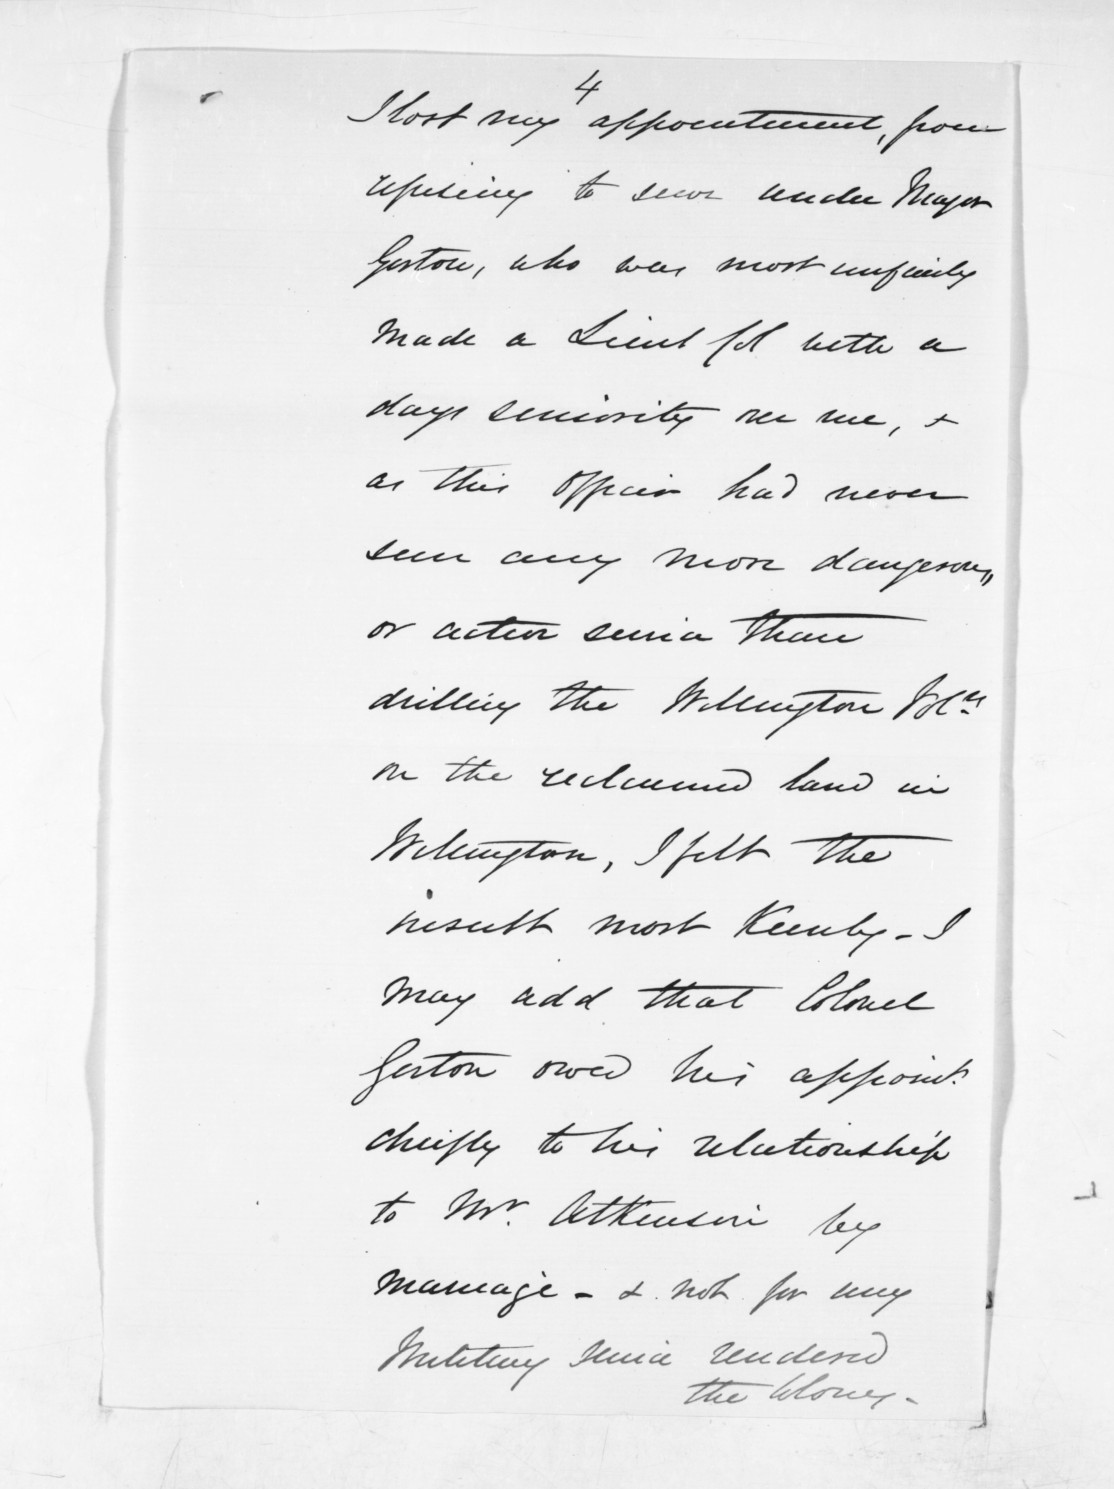 4
I lost my appointment, from
refusing to serve under Major
Gorton, who was most unfairly
made a Lieut Col with a
days seniority over me, &
as this Officer had never
seen any more dangerous,
or active service than
drilling the Wellington Volrs
on the reclaimed land in
Wellington, I felt the
insult most Keenly - I
may add that Colonel
Gorton owed his appoint.
chiefly to his relationship
to Mr. Atkinson by
marriage - & not for any
Military service rendered
the Colony -